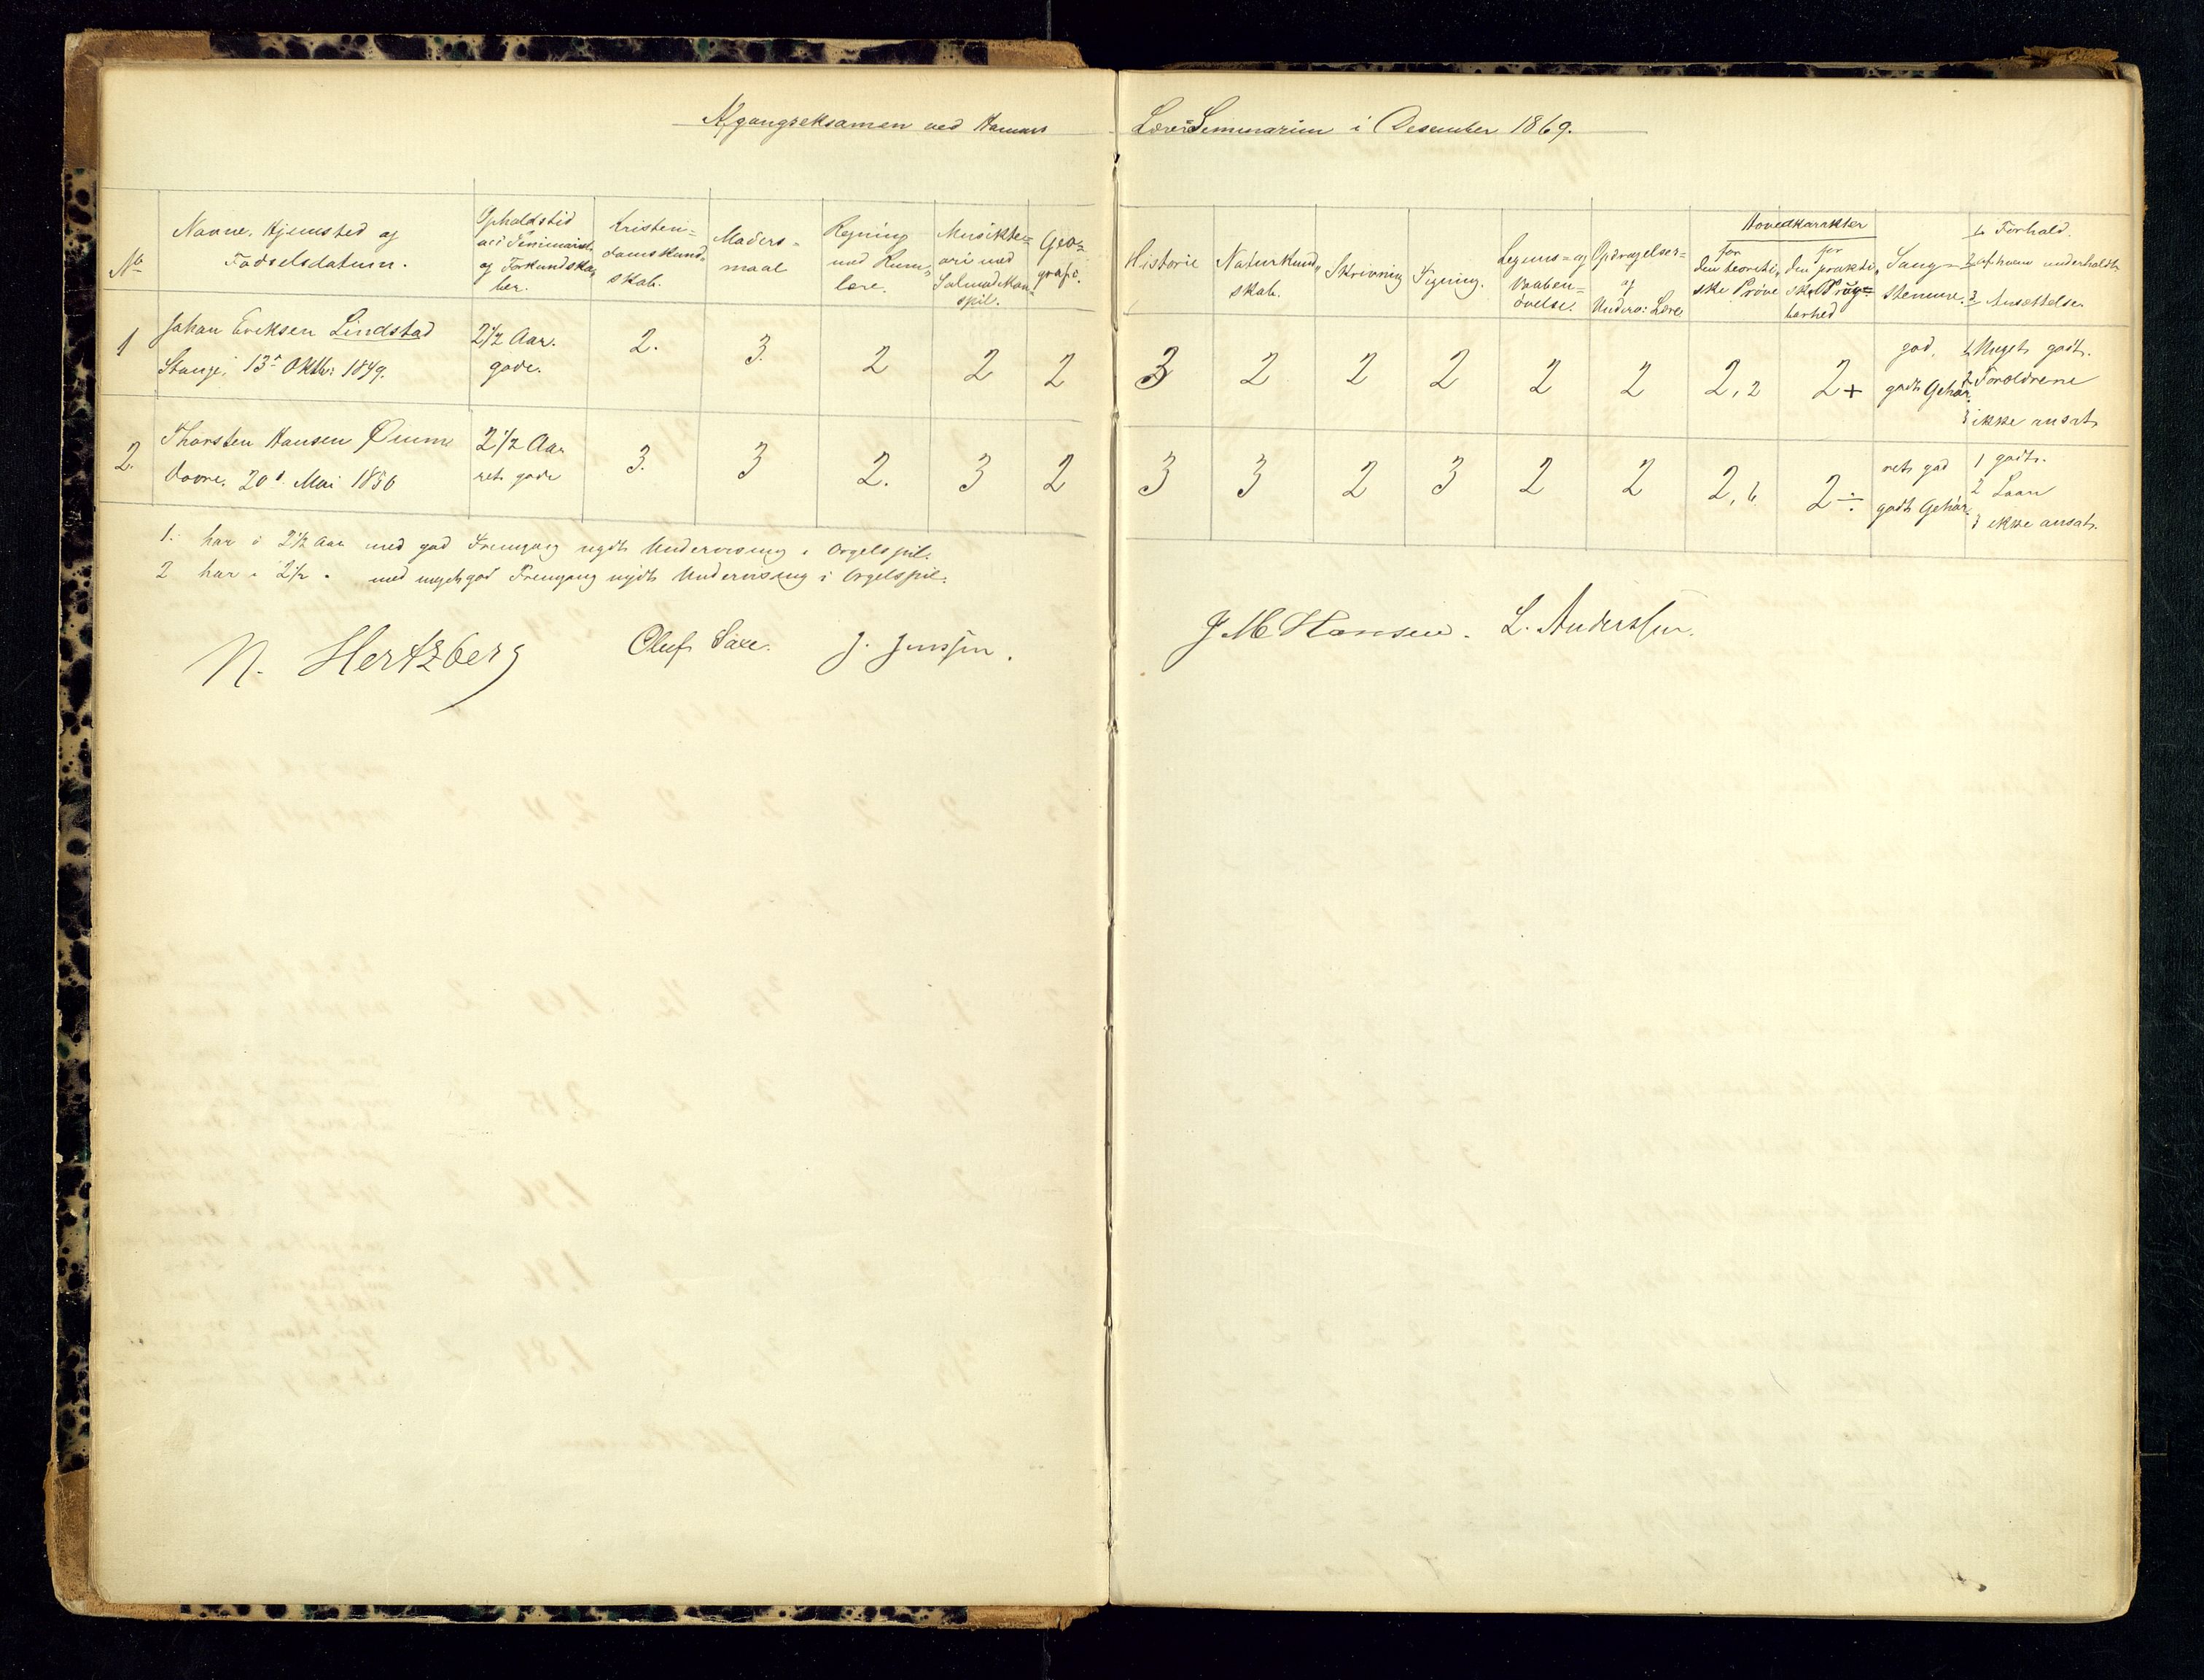 Afgangseksamen ved Hamars Lærer Seminarium i Desember 1869.
No
Navne, Hjemsted og
Fødselsdatum.
Opholdstid
ved Seminariet
og Forkundska,
ber.
Kristen=
domskund,
skab.
Moders=
maal
Regning
med Rum,
lære.
Musikte=
ori med
Salmodikon
spil.
Geo=
grafi.
Historie
Naturkund,
skab.
Skrivning
Tegning.
Legems= og
Vaaben=
øvelse.
Opdragelses=
og
Underv: Lære
Hovedkarakter
for
den teoreti,
ske Prøve
for
den prakti,
ske Brug=
barhed
Sang=
stemme.
1. Forhold.
2 af hvem underholdt
3 Ansættelse
1
Johan Eriksen Lindstad
Stange, 13de Oktbr 1849.
2 1/2 Aar.
gode.
2.
3.
2
2
2
3
2
2
2
2
2
2,2
2+
god,
godt Gehør.
1 Meget godt.
2 Forældrene
3 ikke ansat.
2.
Thorsten Hansen
Dovre. 20de Mai 1850
2 1/2 Aar
ret gode
3.
3
2.
3
2
3
3
2
3
2
2
2,6
2÷
ret god
godt Gehør.
1 godt.
2 Laan
3 ikke ansat.
1. har i 2 1/2 Aar med god Fremgang nydt Undervisning i Orgelspil.
2 har i 2 1/2 " med meget god Fremgang nydt Undervisning i Orgelspil.
N. Hertzberg
Oluf Saxe.
J. Jenssen.
J M Hansen.
L. Anderssen.